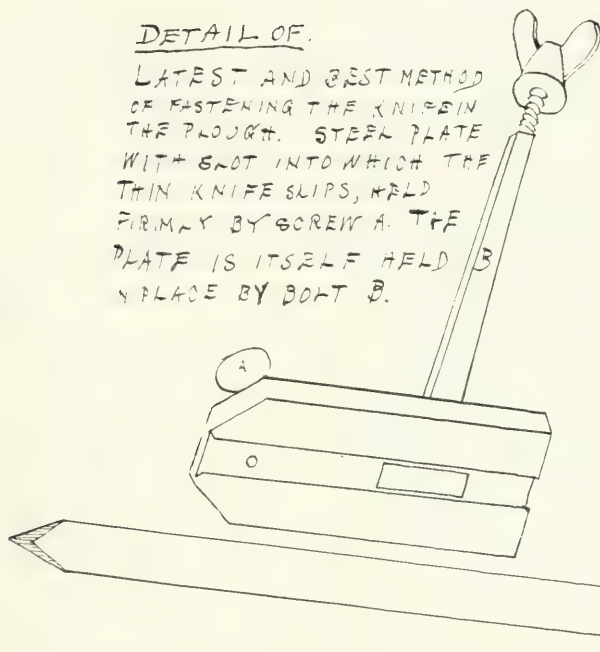 DETAIL OF.
LATEST AND BEST METHOD
OF FASTENING THE KNIFE IN
THE PLOUGH. STEEL PLATE
WITH SLOT INTO WHICH THE
THIN KNIFE SLIPS, HELD
FIRMLY BY SCREW A. THE
PLATE IS ITSELF HELD
N PLACE BY BOLT B.
B
A